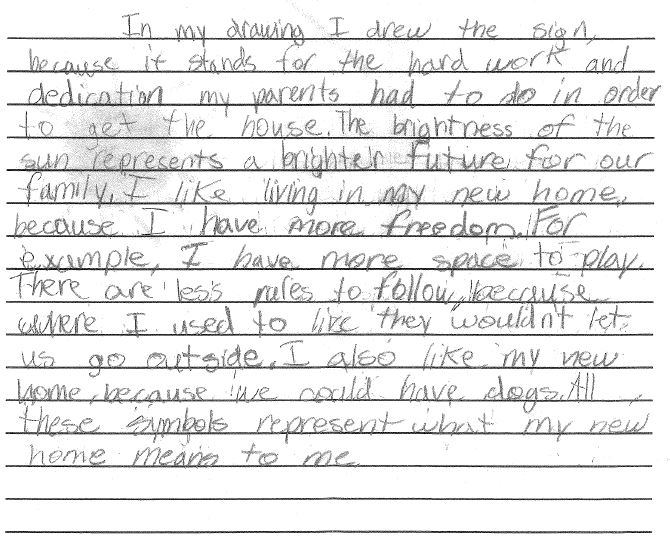 In my drawing I drew the sign,
because it stands for the hard work and
dedication my parents had to do in order
to get the house. The brightness of the
sun represents a brighter future for our
family. I like living in my new home,
because I have more freedom. For
example, I have more space to play.
There are less rules to follow, because
where I used to live they wouldn't let
us go outside. I also like my new
home, because we could have dogs. All
these symbols represent what my new
home means to me